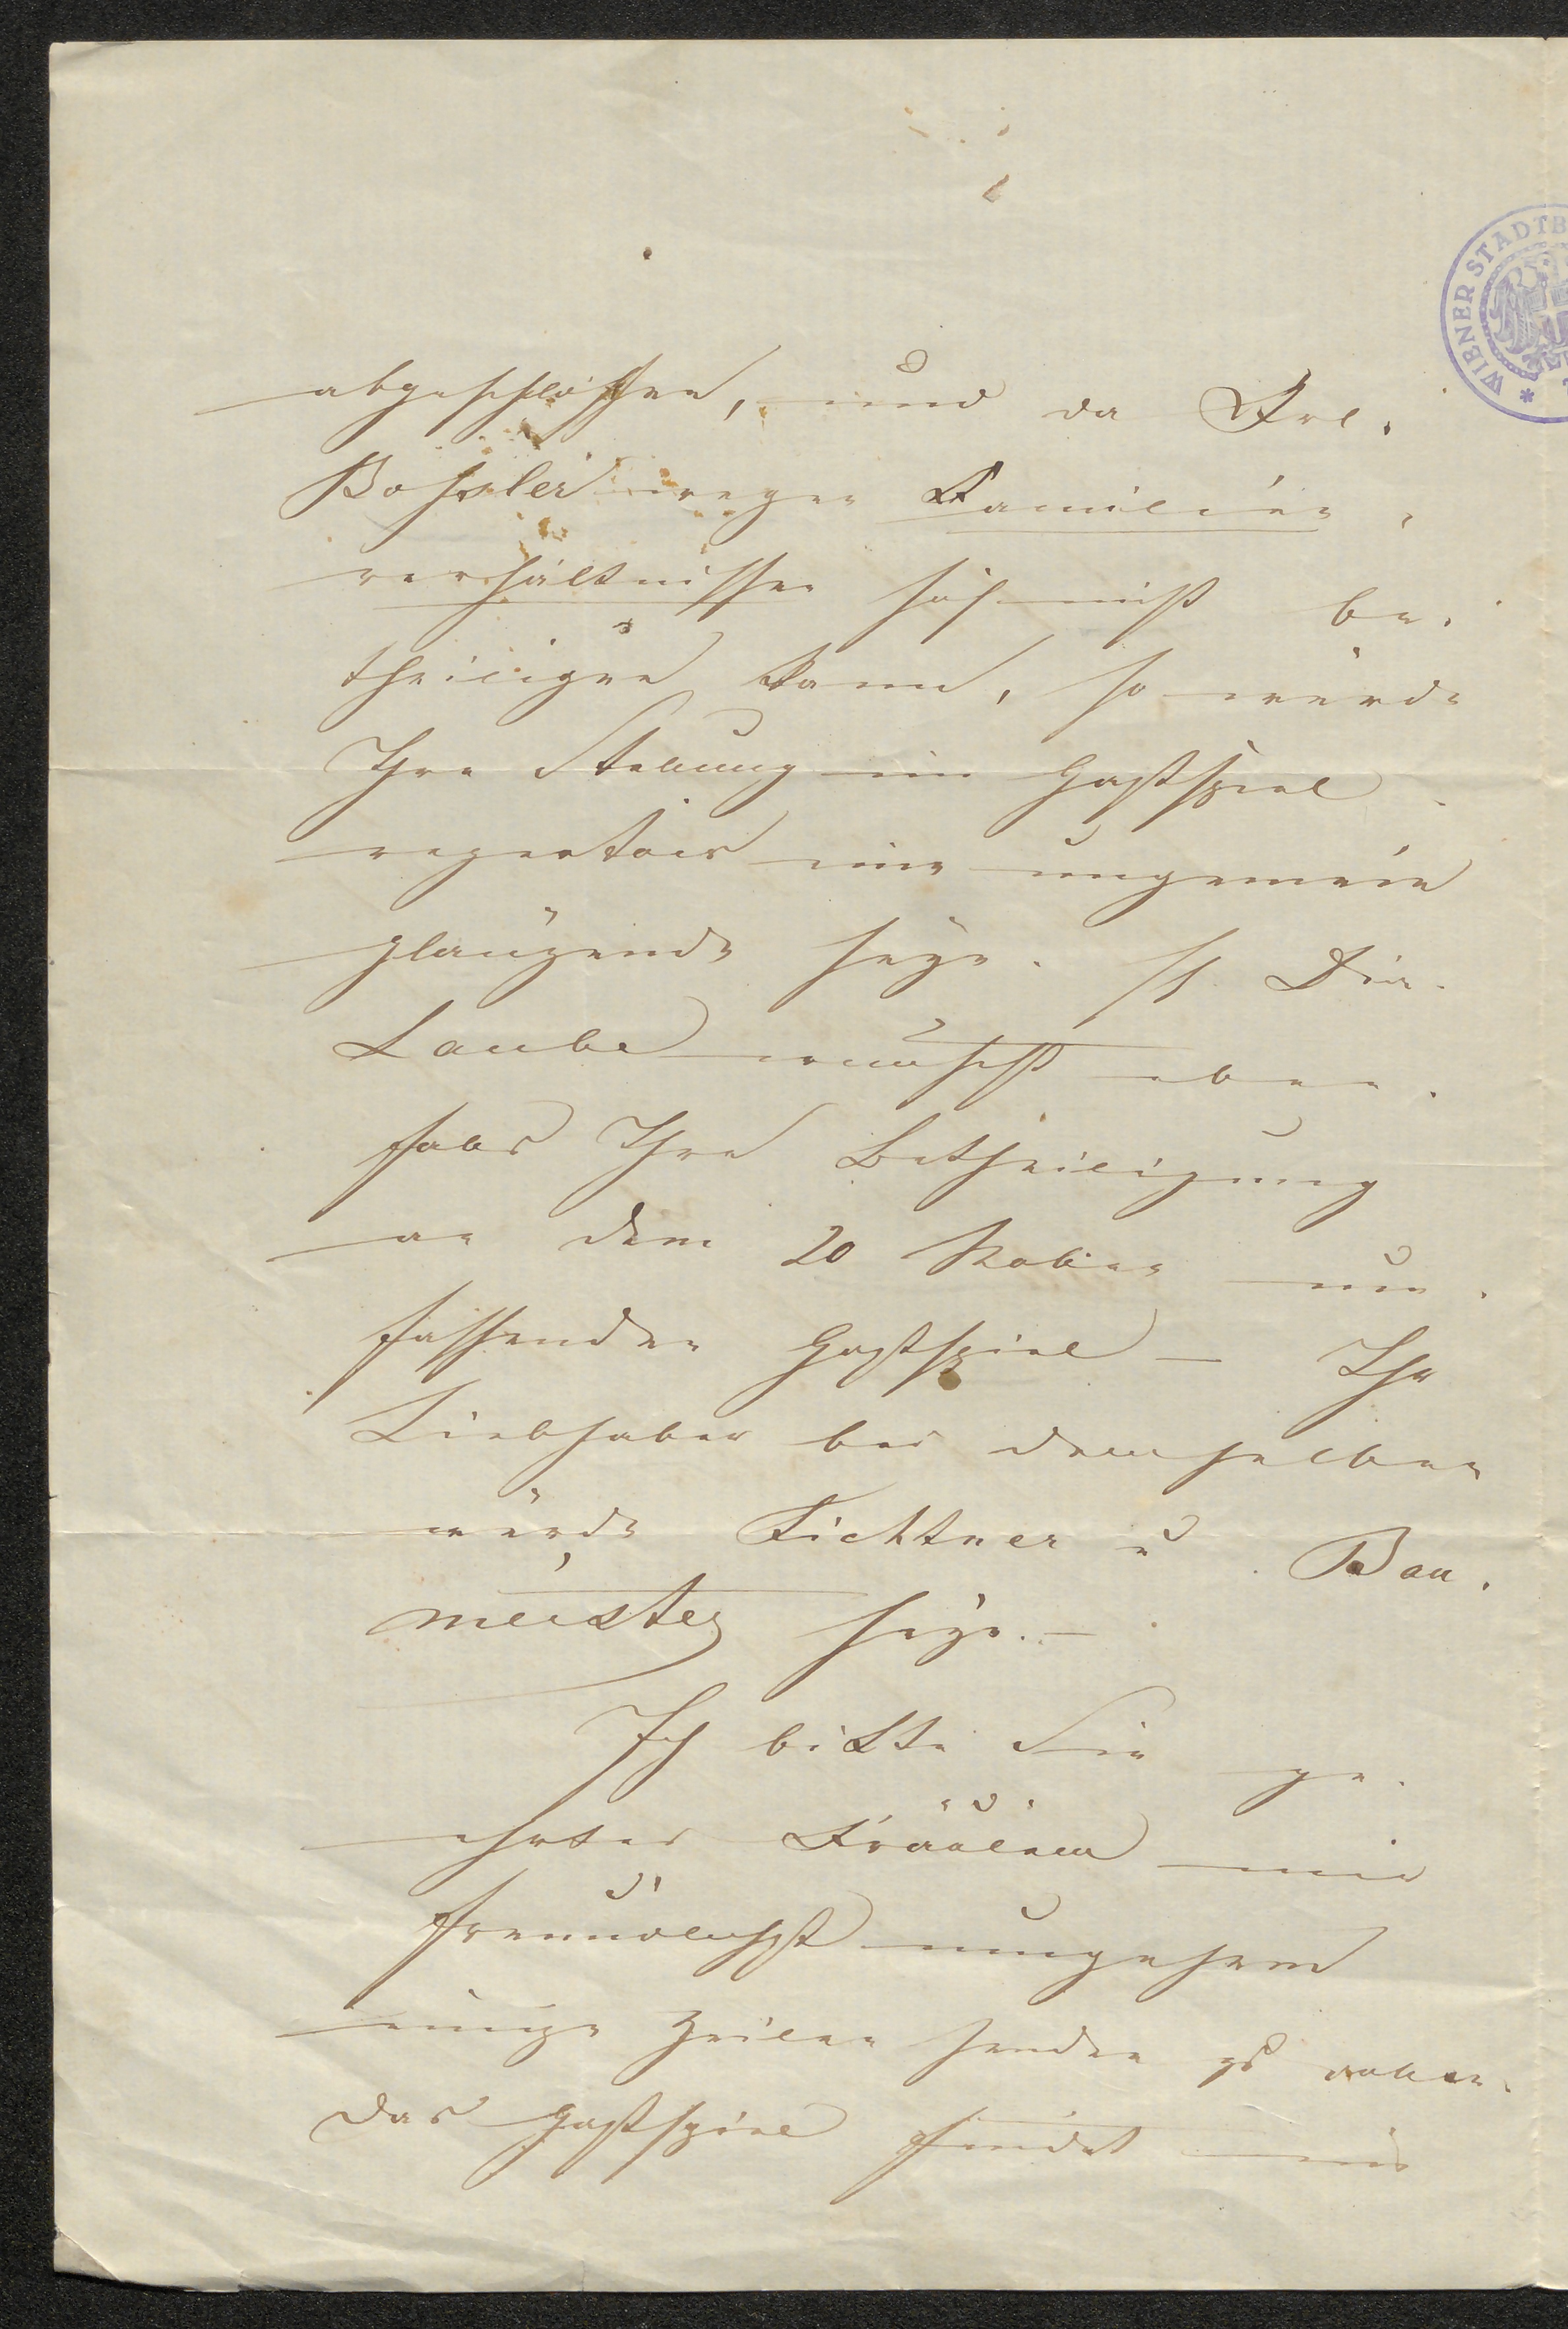 abgeschlossen, und da Frl.
Boßler wegen Familien-
verhältnissen sich nicht be-
theiligen kann, so würde
Ihre Stellung im Gastspiel-
repertoir eine ungemein
glänzende seyn. H Dir.
Laube wünscht eben-
falls Ihre Betheiligung
an dem 20 Rollen um-
fassenden Gastspiel – Ihr
Liebhaber bei demselben
würde Fichtner u Bau-
meister seyn. –
Ich bitte Sie ge-
ehrtes Fräulein mir
freundlichst umgehend
einige Zeilen senden zu wollen.
Das Gastspiel findet
WIENER STADTB